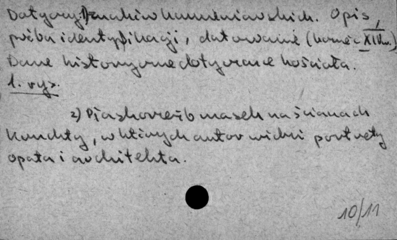 Dotyczy znaków kamieniarskich. Opis,
próba identyfikacji, datowanie (koniec XII w.)
Dane historyczne dotyczące kościoła.
1. ryc.
2) Płaskorzeźb masek na ścianach
konchty, w których autor widzi portrety
opata i architekta.
10/11